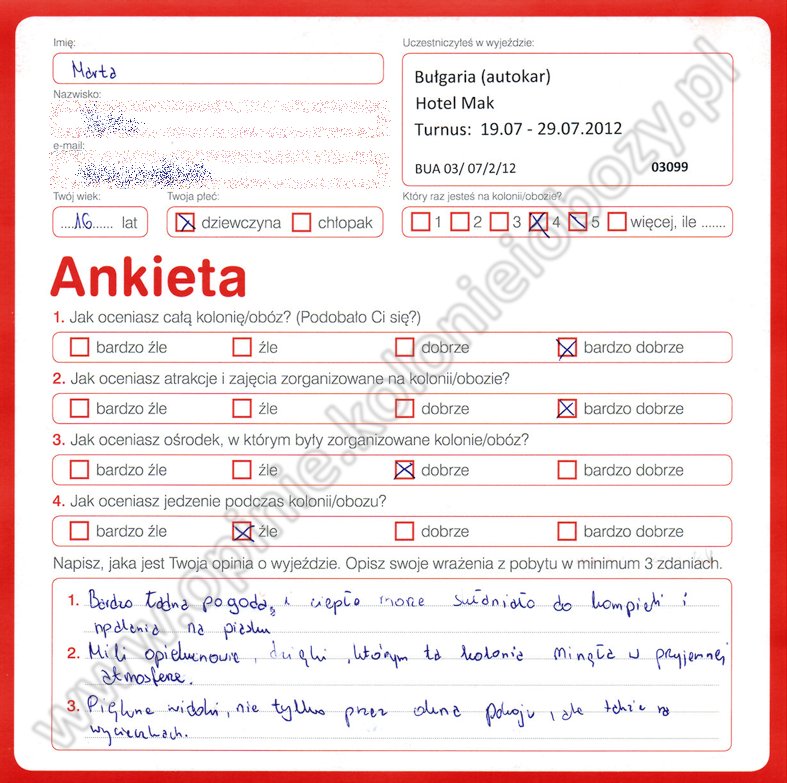 Imię:
Marta
Nazwisko:
e-mail:
Twój wiek:
16 lat
Twoja płeć:
dziewczyna chłopak
Uczestniczyłeś w wyjeździe:
Bułgaria (autokar)
Hotel Mak
Turnus: 19.07 - 29.07.2012
BUA 03/ 07/2/12 03099
Który raz jesteś na kolonii/obozie?
1 2 3 4 5 więcej, ile .......
Ankieta
1. Jak oceniasz całą kolonię/obóz? (Podobało Ci się?)
bardzo źle źle dobrze bardzo dobrze
2. Jak oceniasz atrakcje i zajęcia zorganizowane na kolonii/obozie?
bardzo źle źle dobrze bardzo dobrze
3. Jak oceniasz ośrodek, w którym były zorganizowane kolonie/obóz?
bardzo źle źle dobrze bardzo dobrze
4. Jak oceniasz jedzenie podczas kolonii/obozu?
bardzo źle źle dobrze bardzo dobrze
Napisz, jaka jest Twoja opinia o wyjeździe. Opisz swoje wrażenia z pobytu w minimum 3 zdaniach.
1. Bardzo ładna pogoda, i ciepłe morze skłaniało do kąpieli i
opalania na piasku
2. Mili opiekunowie, dzięki, którym ta kolonia minęła w przyjemnej
atmosferze.
3. Piękne widoki, nie tylko przez okna pokoju, ale także na
wycieczkach.
www.opinie.kolonieiobozy.pl